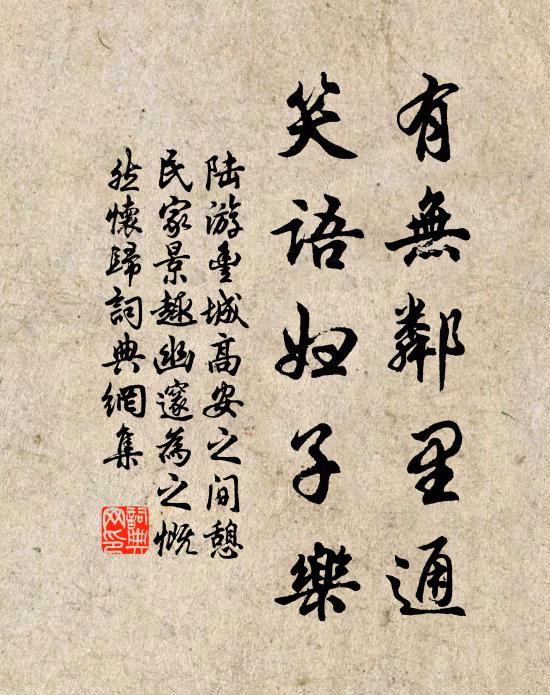 有無鄰里通
笑語妇子樂
陆游豊城高安之间憩
民家景趣幽邃為之慨
然懷歸詞典網集
詞典
网印